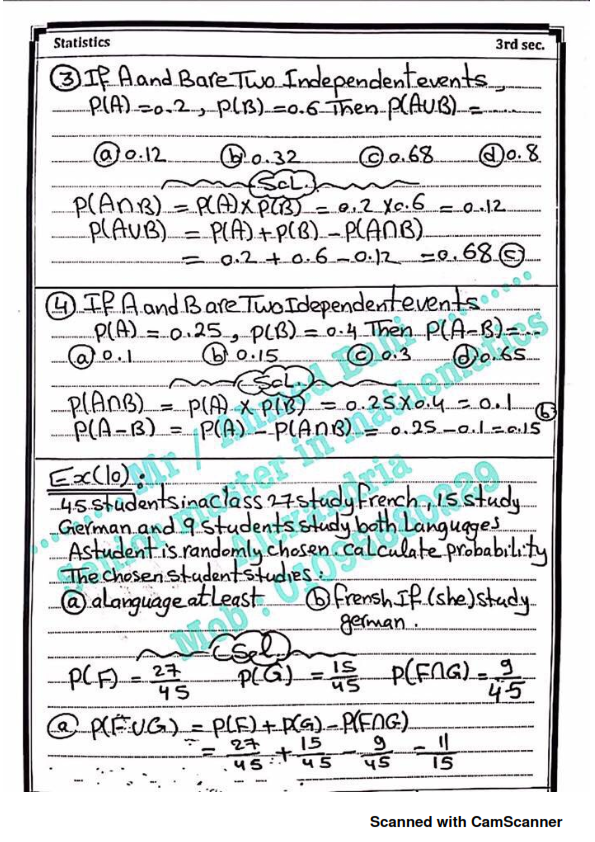 Statistics 3rd sec.
③ If A and B are Two Independent events,
P(A) = 0.2, P(B) = 0.6 Then P(A∪B) = .....
ⓐ 0.12 ⓑ 0.32 ⓒ 0.68 ⓓ 0.8
Sol.
P(A∩B) = P(A) × P(B) = 0.2 × 0.6 = 0.12
P(A∪B) = P(A) + P(B) - P(A∩B)
= 0.2 + 0.6 - 0.12 = 0.68 ⓒ
④ If A and B are Two Idependent events
P(A) = 0.25, P(B) = 0.4 Then P(A-B) = ...
ⓐ 0.1 ⓑ 0.15 ⓒ 0.3 ⓓ 0.65
Sol.
P(A∩B) = P(A) × P(B) = 0.25 × 0.4 = 0.1 ⓑ
P(A-B) = P(A) - P(A∩B) = 0.25 - 0.1 = 0.15
Ex(10):
45 students in a class 27 study French, 15 study
German and 9 students study both Languages
A student is randomly chosen calculate probability
The chosen student studies:
ⓐ a language at Least ⓑ frensh If (she) study
german.
Sol.
P(F) = 27/45 P(G) = 15/45 P(F∩G) = 9/45
ⓐ P(F∪G) = P(F) + P(G) - P(F∩G)
= 27/45 + 15/45 - 9/45 = 11/15
Mr /
senior master in mathematics
Alexandria
Mob :
Scanned with CamScanner